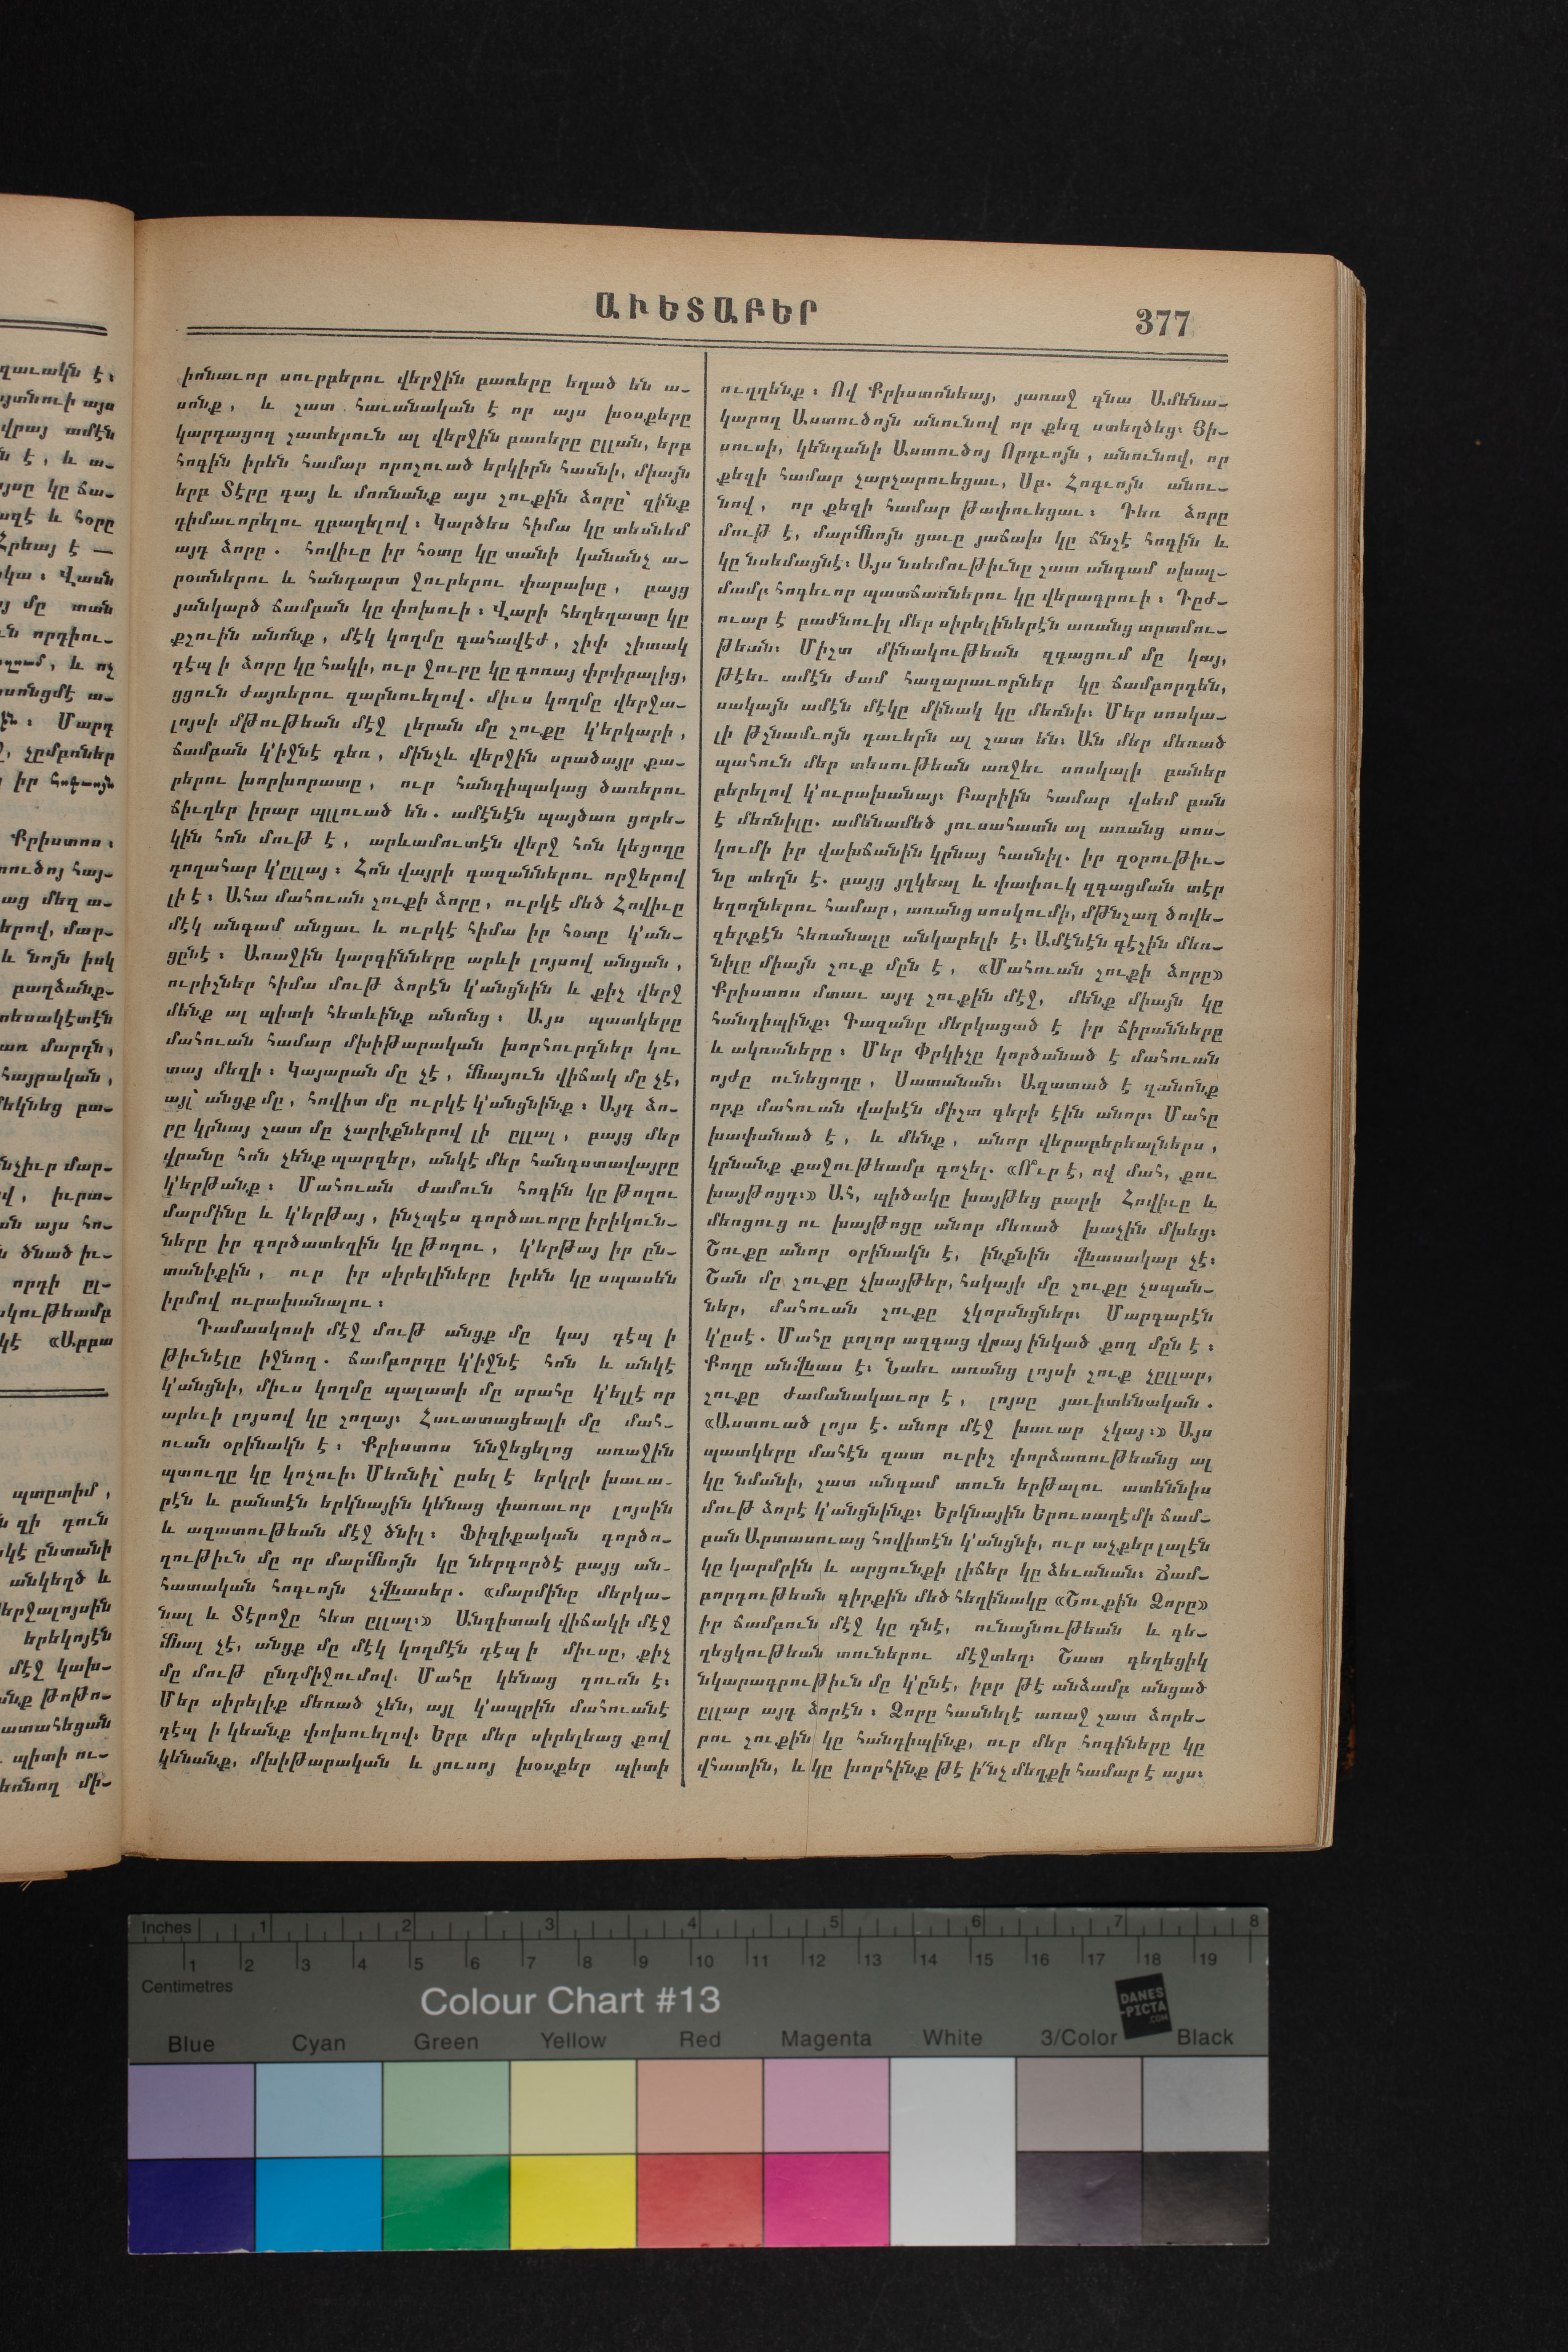 ԱՒԵՏԱԲԵՐ
377
խոնաւոր սուրբերու վերջին բառերը եղած են ա-
սոնք, և շատ հաւանական է որ այս խօսքերը
կարդացող շատերուն ալ վերջին բառերը ըլլան, երբ
հոգին իրեն համար որոշուած երկիրն հասնի, միայն
երբ Տէրը գայ և մոռնանք այս շուքին ձորը՝ զինք
դիմաւորելու զբաղելով։ Կարծես հիմա կը տեսնեմ
այդ ձորը. հովիւը իր հօտը կը տանի կանանչ ա-
րօտներու և հանդարտ ջուրերու փարախը, բայց
յանկարծ ճամբան կը փոխուի։ Վարի հեղեղատը կը
քշուին անոնք, մէկ կողմը գահավէժ, շիփ շիտակ
դէպ ի ձորը կը հակի, ուր ջուրը կը գոռայ փրփրալից,
ցցուն ժայռերու զարնուելով. միւս կողմը վերջա-
լոյսի մթութեան մէջ լերան մը շուքը կ՚երկարի,
ճամբան կ՚իջնէ դեռ, մինչև վերջին սրածայր քա-
րերու խորխորատը, ուր հանդիպակաց ծառերու
ճիւղեր իրար պլլուած են. ամէնէն պայծառ ցորե-
կին հոն մութ է, արևամուտէն վերջ հոն կեցողը
դողահար կ՚ըլլայ։ Հոն վայրի գազաններու որջերով
լի է։ Ահա մահուան շուքի ձորը, ուրկէ մեծ Հովիւը
մէկ անգամ անցաւ և ուրկէ հիմա իր հօտը կ՚ան-
ցընէ։ Առաջին կարգինները արևի լոյսով անցան,
ուրիշներ հիմա մութ ձորէն կ՚անցնին և քիչ վերջ
մենք ալ պիտի հետևինք անոնց։ Այս պատկերը
մահուան համար մխիթարական խորհուրդներ կու
տայ մեզի։ Կայարան մը չէ, մնայուն վիճակ մը չէ,
այլ անցք մը, հովիտ մը ուրկէ կ՚անցնինք։ Այդ ձո-
րը կրնայ շատ մը չարիքներով լի ըլլալ, բայց մեր
վրանը հոն չենք պարզեր, անկէ մեր հանգստավայրը
կ՚երթանք։ Մահուան ժամուն հոգին կը թողու
մարմինը և կ՚երթայ, ինչպէս գործաւորը իրիկուն-
ները իր գործատեղին կը թողու, կ՚երթայ իր ըն-
տանիքին, ուր իր սիրելիները իրեն կը սպասեն
իրմով ուրախանալու։
Դամասկոսի մէջ մութ անցք մը կայ դէպ ի
թիւնէլը իջնող. ճամբորդը կ՚իջնէ հոն և անկէ
կ՚անցնի, միւս կողմը պալատի մը սրահը կ՚ելլէ որ
արեւի լոյսով կը շողայ։ Հաւատացեալի մը մահ-
ուան օրինակն է։ Քրիստոս ննջեցելոց առաջին
պտուղը կը կոչուի։ Մեռնիլ՝ ըսել է երկրի խաւա-
րէն և բանտէն երկնային կենաց փառաւոր լոյսին
և ազատութեան մէջ ծնիլ։ Ֆիզիքական գործո-
ղութիւն մը որ մարմնոյն կը ներգործէ բայց ան-
հատական հոգւոյն չվնասեր. «մարմինը մերկա-
նալ և Տէրոջը հետ ըլլալ։» Անգիտակ վիճակի մէջ
մնալ չէ, անցք մը մէկ կողմէն դէպ ի միւսը, քիչ
մը մութ ընդմիջումով։ Մահը կենաց դուռն է։
Մեր սիրելիք մեռած չեն, այլ կ՚ապրին մահուանէ
դէպ ի կեանք փոխուելով։ Երբ մեր սիրելեաց քով
կենանք, մխիթարական և յուսոյ խօսքեր պիտի
ուղղենք։ Ով Քրիստոնեայ, յառաջ գնա Ամենա-
կարող Աստուծոյն անունով որ քեզ ստեղծեց։ Յի-
սուսի, կենդանի Աստուծոյ Որդւոյն, անունով, որ
քեզի համար չարչարուեցաւ, Սբ. Հոգւոյն անու-
նով, որ քեզի համար թափուեցաւ։ Դեռ ձորը
մութ է, մարմնոյն ցաւը յաճախ կը ճնշէ հոգին և
կը նսեմացնէ։ Այս նսեմութիւնը շատ անգամ սխալ-
մամբ հոգեւոր պատճառներու կը վերագրուի։ Դըժ-
ուար է բաժնուիլ մեր սիրելիներէն առանց տրտմու-
թեան։ Միշտ մինակութեան զգացում մը կայ,
թէեւ ամէն ժամ հազարաւորներ կը ճամբորդեն,
սակայն ամէն մէկը մինակ կը մեռնի։ Մեր սոսկա-
լի թշնամւոյն դաւերն ալ շատ են։ Ան մեր մեռած
պահուն մեր տեսութեան առջեւ սոսկալի բաներ
բերելով կ՚ուրախանայ։ Բարիին համար վսեմ բան
է մեռնիլը. ամենամեծ յուսահատն ալ առանց սոս-
կումի իր վախճանին կրնայ հասնիլ. իր զօրութիւ-
նը տեղն է. բայց յղկեալ և փափուկ զգացման տէր
եղողներու համար, առանց սոսկումի, մթնշաղ ծովե-
զերքէն հեռանալը անկարելի է։ Ամէնէն գէշին մեռ-
նիլը միայն շուք մըն է, «Մահուան շուքի ձորը»
Քրիստոս մտաւ այդ շուքին մէջ, մենք միայն կը
հանդիպինք։ Գազանը մերկացած է իր ճիրանները
և ակռաները։ Մեր Փրկիչը կործանած է մահուան
ոյժը ունեցողը, Սատանան։ Ազատած է զանոնք
որք մահուան վախէն միշտ գերի էին անոր։ Մահը
խափանած է, և մենք, անոր վերաբերեալներս,
կրնանք քաջութեամբ գոչել. «Ո՞ւր է, ով մահ, քու
խայթոցդ։» Ահ, պիծակը խայթեց բարի Հովիւը և
մեռցուց ու խայթոցը անոր մեռած խաչին մխեց։
Շուքը անոր օրինակն է, ինքնին վնասակար չէ։
Շան մը շուքը չխայթեր, հսկայի մը շուքը չսպան-
ներ, մահուան շուքը չկորսնցներ։ Մարգարէն
կ՚ըսէ. Մահը բոլոր ազգաց վրայ ինկած քող մըն է։
Քողը անվնաս է։ Նաեւ առանց լոյսի շուք չըլլար,
շուքը ժամանակաւոր է, լոյսը յաւիտենական.
«Աստուած լոյս է. անոր մէջ խաւար չկայ։» Այս
պատկերը մահէն զատ ուրիշ փորձառութեանց ալ
կը նմանի, շատ անգամ տուն երթալու ատեննիս
մութ ձորէ կ՚անցնինք։ Երկնային Երուսաղէմի ճամ-
բան Արտասուաց հովիտէն կ՚անցնի, ուր աչքեր լալէն
կը կարմրին և արցունքի լիճեր կը ձեւանան։ Ճամ-
բորդութեան գիրքին մեծ հեղինակը «Շուքին Ձորը»
իր ճամբուն մէջ կը դնէ, ունայնութեան և գե-
ղեցկութեան տուներու մէջտեղ։ Շատ գեղեցիկ
նկարագրութիւն մը կ՚ընէ, իբր թէ անձամբ անցած
ըլլար այդ ձորէն։ Ձորը հասնելէ առաջ շատ ձորե-
րու շուքին կը հանդիպինք, ուր մեր հոգիները կը
վհատին, և կը խորհինք թէ ի՛նչ մեղքի համար է այս։